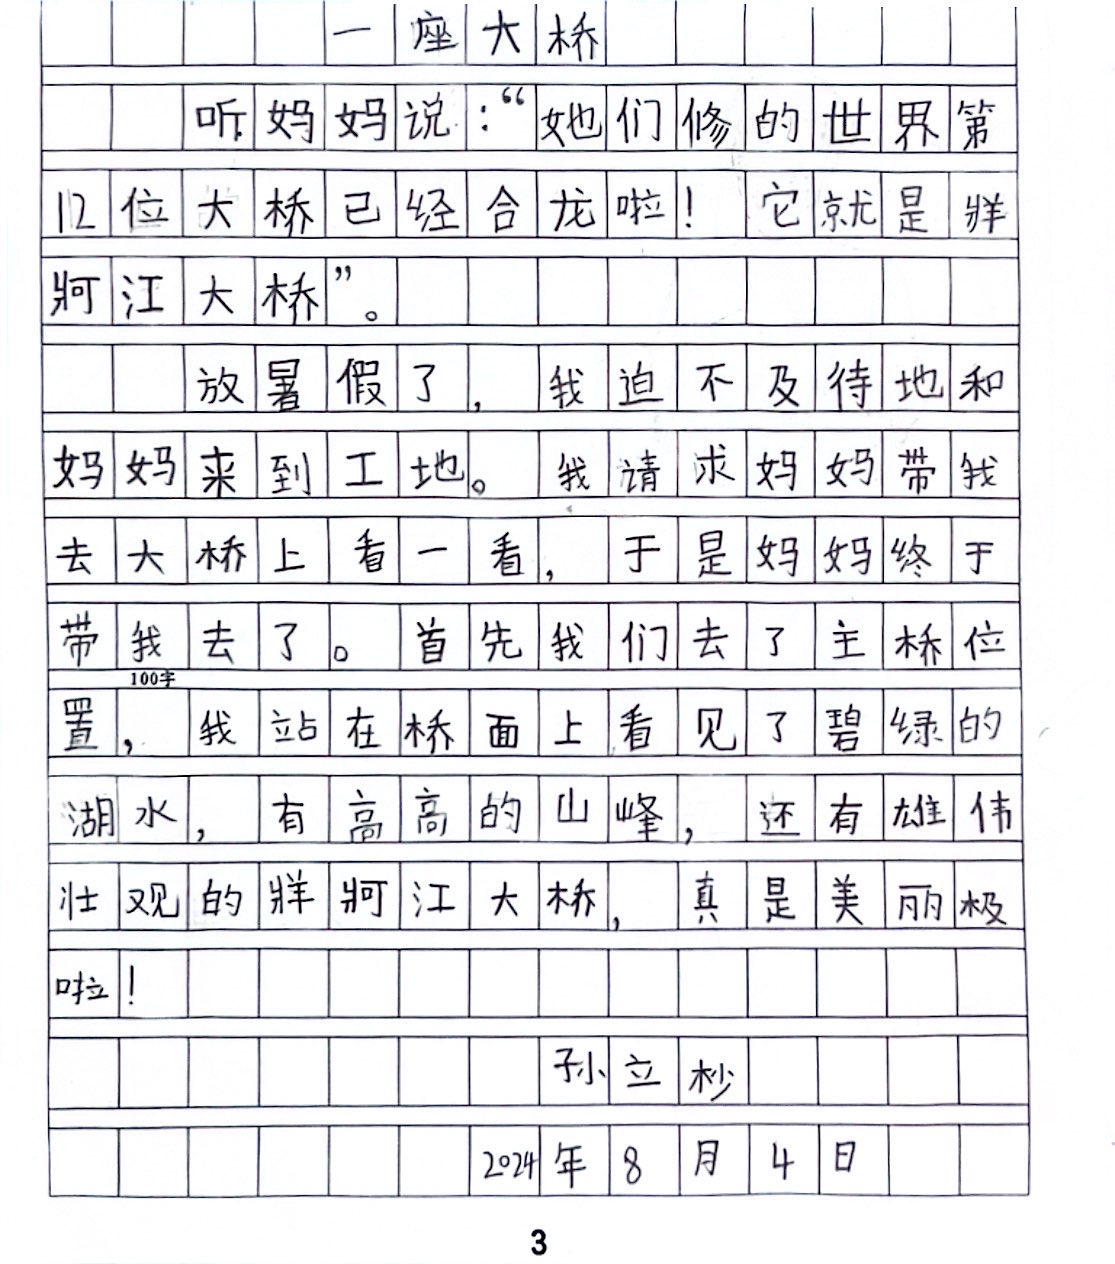 一座大桥
听妈妈说：“她们修的世界第
12位大桥已经合龙啦！它就是牂
牁江大桥”。
放暑假了，我迫不及待地和
妈妈来到工地。我请求妈妈带我
去大桥上看一看，于是妈妈终于
带我去了。首先我们去了主桥位
100字
置，我站在桥面上看见了碧绿的
湖水，有高高的山峰，还有雄伟
壮观的牂牁江大桥，真是美丽极
啦！
孙立杪
2024年8月4日
3